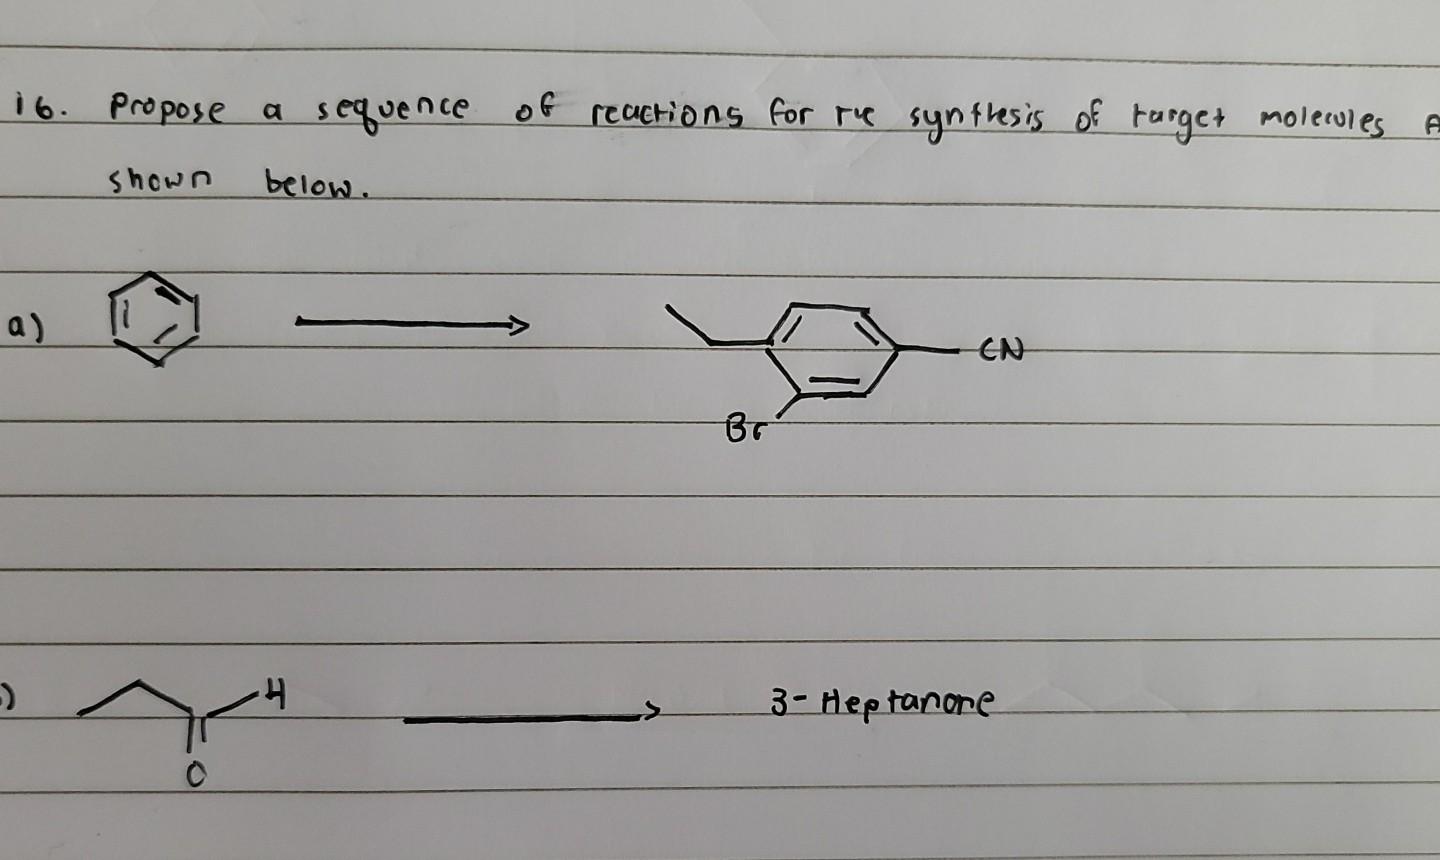 16. Propose a sequence of reactions for the synthesis of target molecules A
shown below.
a)
CN
Br
)
H
3-Heptanone
O